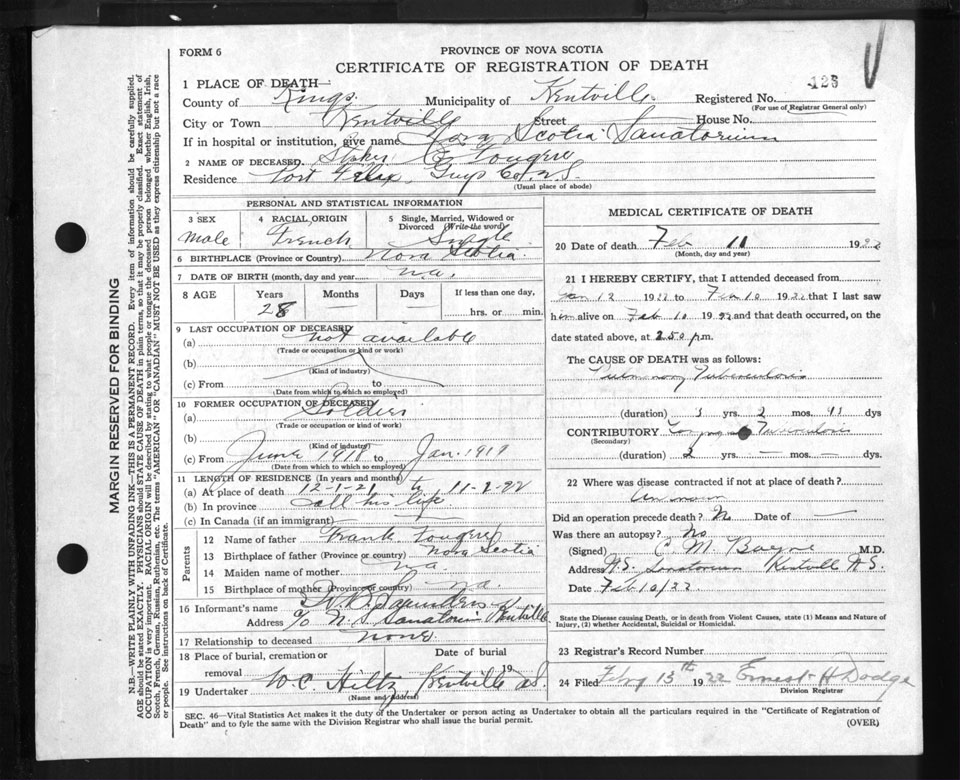 FORM 6
PROVINCE OF NOVA SCOTIA
CERTIFICATE OF REGISTRATION OF DEATH
126
1 PLACE OF DEATH—
County of Kings Municipality of Kentville Registered No.
(For use of Registrar General only)
City or Town Kentville Street House No.
If in hospital or institution, give name Nova Scotia Sanatorium
2 NAME OF DECEASED C Fougere
Residence Port Felix Guys Co. N.S.
(Usual place of abode)
PERSONAL AND STATISTICAL INFORMATION
3 SEX 4 RACIAL ORIGIN 5 Single, Married, Widowed or Divorced (Write the word)
Male French Single
6 BIRTHPLACE (Province or Country) Nova Scotia
7 DATE OF BIRTH (month, day and year) n.a.
8 AGE Years Months Days If less than one day,
28 — hrs. or min.
9 LAST OCCUPATION OF DECEASED
(a) not available
(Trade or occupation or kind or work)
(b)
(Kind of industry)
(c) From to
(Date from which to which so employed)
10 FORMER OCCUPATION OF DECEASED
(a) Soldier
(Trade or occupation or kind of work)
(b)
(Kind of industry)
(c) From June 1918 Jan. 1919
(Date from which so employed)
11 LENGTH OF RESIDENCE (In years and months)
(a) At place of death 12-1-21 to 11-2-22
(b) In province all his life
(c) In Canada (if an immigrant)
Parents
12 Name of father Frank Fougere
13 Birthplace of father (Province or country) Nova Scotia
14 Maiden name of mother n.a.
15 Birthplace of mother (Province or Country) n.a.
16 Informant's name Saunders
Address c/o N.S. Sanatorium Kentville
17 Relationship to deceased none
18 Place of burial, cremation or removal Date of burial 19
19 Undertaker W C Hiltz Kentville N.S.
(Name and address)
MEDICAL CERTIFICATE OF DEATH
20 Date of death Feb 11 1922
(Month, day and year)
21 I HEREBY CERTIFY, that I attended deceased from
Jan 12 1922 to Feb 10 1922 that I last saw
him alive on Feb 10 1922 and that death occurred, on the
date stated above, at 2.50 p.m.
The CAUSE OF DEATH was as follows:
Pulmonary Tuberculosis
(duration) yrs. 2 mos. dys
CONTRIBUTORY Laryngeal Tuberculosis
(Secondary)
(duration) 2 yrs. — mos. — dys.
22 Where was disease contracted if not at place of death?
Unknown
Did an operation precede death? No Date of —
Was there an autopsy? No
(Signed) C M Bayne M.D.
Address N.S. Sanatorium Kentville N.S.
Date Feb 10/22
State the Disease causing Death, or in death from Violent Causes, state (1) Means and Nature of Injury, (2) whether Accidental, Suicidal or Homicidal.
23 Registrar's Record Number
24 Filed Feby 13th 1922 Ernest H Dodge
Division Registrar
SEC. 46—Vital Statistics Act makes it the duty of the Undertaker or person acting as Undertaker to obtain all the particulars required in the "Certificate of Registration of
Death" and to fyle the same with the Division Registrar who shall issue the burial permit.
(OVER)
MARGIN RESERVED FOR BINDING
N.B.—WRITE PLAINLY WITH UNFADING INK—THIS IS A PERMANENT RECORD. Every item of information should be carefully supplied.
AGE should be stated EXACTLY. PHYSICIANS should STATE CAUSE OF DEATH in plain terms, so that it may be properly classified. Exact statement of
OCCUPATION is very important. RACIAL ORIGIN will be described by stating to what people or tongue the deceased person belonged whether English, Irish,
Scotch, French, German, Russian, Ruthenian, etc. The terms "AMERICAN" OR "CANADIAN" MUST NOT BE USED as they express citizenship but not a race
or people. See instructions on back of Certificate.